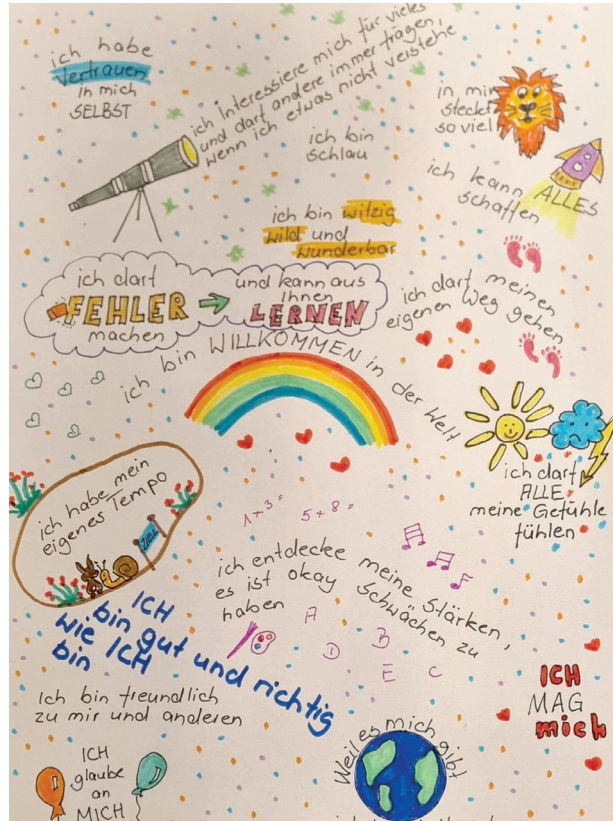 ich habe
Vertrauen
in mich
SELBST
ich interessiere mich für vieles
und darf andere immer fragen,
wenn ich etwas nicht verstehe
in mir
steckt
so viel
ich bin
schlau
ich kann ALLES
schaffen
ich bin witzig
wild und
wunderbar
ich darf
FEHLER
machen
und kann aus
ihnen
LERNEN
ich darf meinen
eigenen Weg gehen
ich bin WILLKOMMEN in der Welt
ich habe mein
eigenes Tempo
ZIEL
ich darf
ALLE
meine Gefühle
fühlen
1+3=
5+8=
ich entdecke meine Stärken,
es ist okay Schwächen zu
haben
A
B
D
E
C
ICH
bin gut und richtig
wie ICH
bin
Ich bin freundlich
zu mir und anderen
ICH
MAG
mich
ICH
glaube
an
MICH
Weil es mich gibt